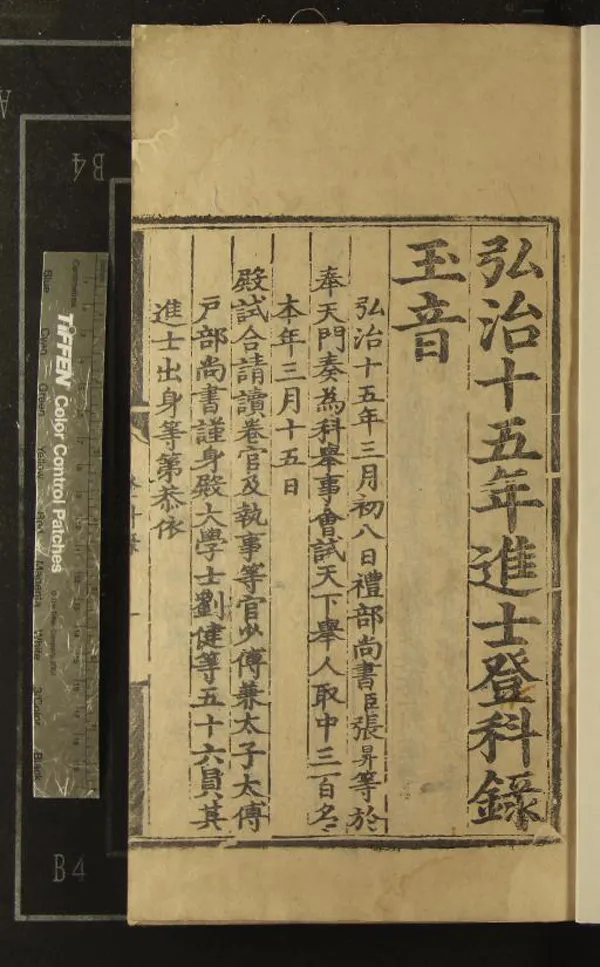 弘治十五年進士登科錄
玉音
弘治十五年三月初八日禮部尚書臣張昇等於
奉天門奏為科舉事會試天下舉人取中三百名
本年三月十五日
殿試合請讀卷官及執事等官少傅兼太子太傅
戶部尚書謹身殿大學士劉健等五十六員其
進士出身等第恭依
TIFFEN Color Control Patches
Blue
Cyan
Green
Yellow
Red
Magenta
White
3/Color
Black
B4
B4
A